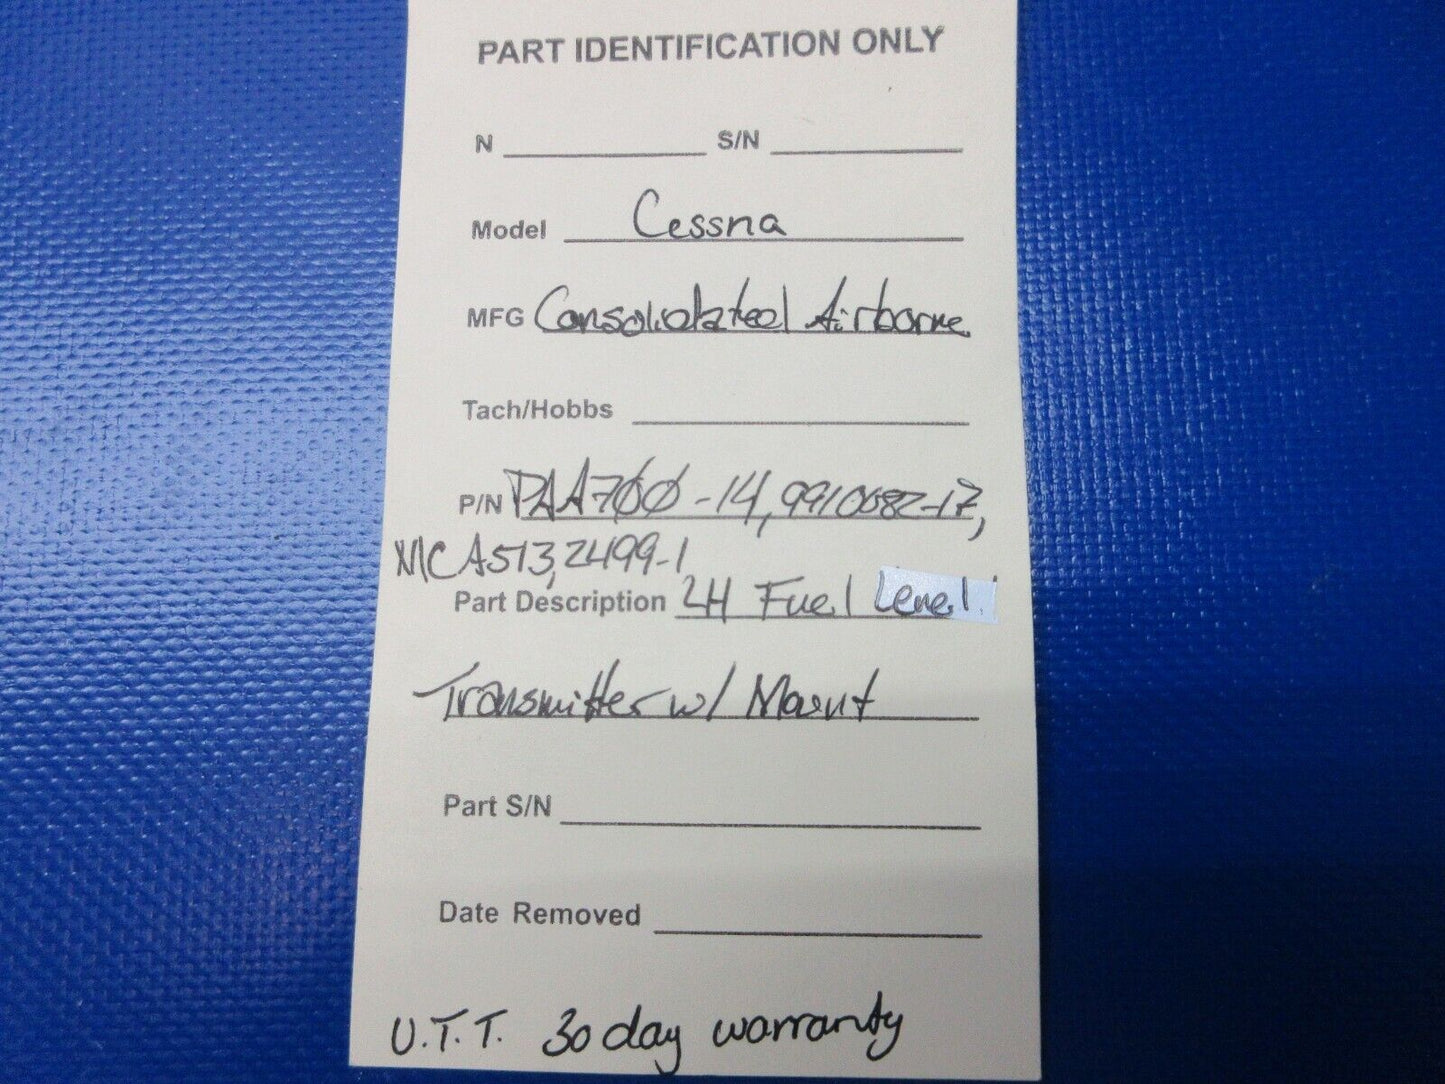 PART IDENTIFICATION ONLY
N S/N
Model Cessna
MFG Consolidated Airborne
Tach/Hobbs
P/N PAA7ØØ-14, 9910082-17,
MCA513, 2499-1
Part Description LH Fuel Level
Transmitter w/ Mount
Part S/N
Date Removed
U.T.T. 30 day warranty